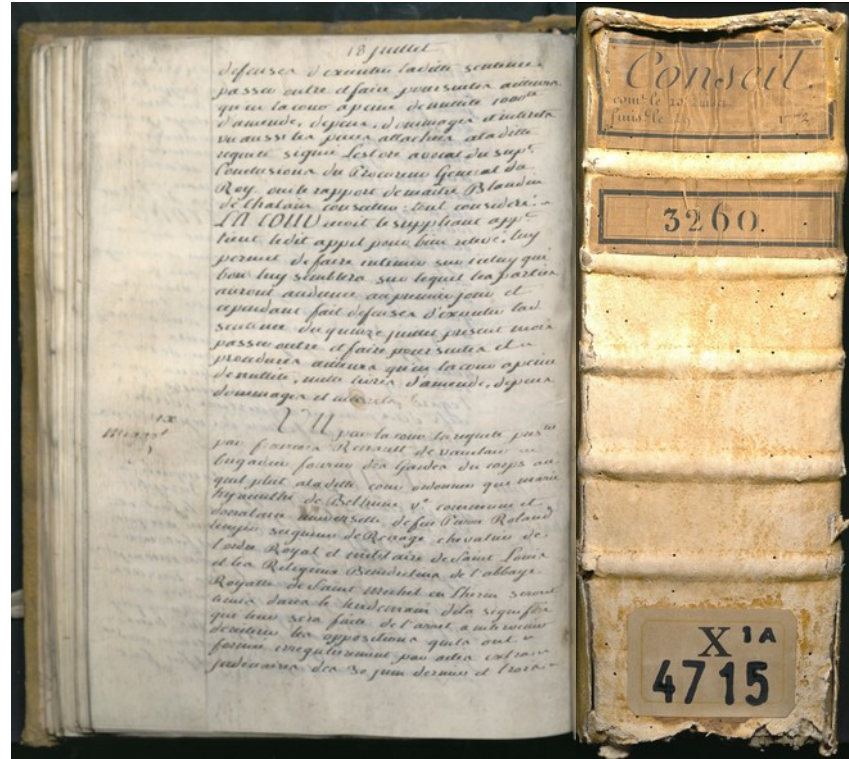 18 juillet
defenses d'executer ladite sentence
passer outre et faire poursuites ailleurs
qu'en la cour a peine de nullité 1000lt
d'amende, depens, dommages et interets
vu aussi les pieces attachées a la ditte
requete signée avocat du supt.
Conclusions du Procureur General du
Roy. oui le rapport de maitre Blondin
de Chalain conseiller: tout consideré.
LA COUR recoit le suppliant appt.
tient ledit appel pour bien relevé. luy
permet de faire intimer sur iceluy qui
bon luy semblera sur lequel les parties
auront audience au premier jour et
cependant fait defenses d'executer lad.
sentence du quinze juillet present mois
passer outre et faire poursuites et
procedures ailleurs qu'en la cour a peine
de nullité, mille livres d'amende, depens
dommages et interets
VU par la cour la requete
par francois Renault de
brigadier fourrier des Gardes du corps au
quil plut a laditte cour ordonner que marie
hyacinthe de Bethune ve. commune et
donataire universelle de feu Pierre Roland
seigneur de chevalier de
l'ordre Royal et militaire de Saint Louis
et les Religieux Benedictins de l'abbaye
Royalle de Saint michel en seront
tenus dans le lendemain de la
qui leur sera faite de l'arret a intervenir
les oppositions quils ont
formées irregulierement par actes extra
judiciaires des 30 juin dernier et trois
Conseil.
coms. le 10 juillet
finis. le 29 1772
3260.
X 1A
4715